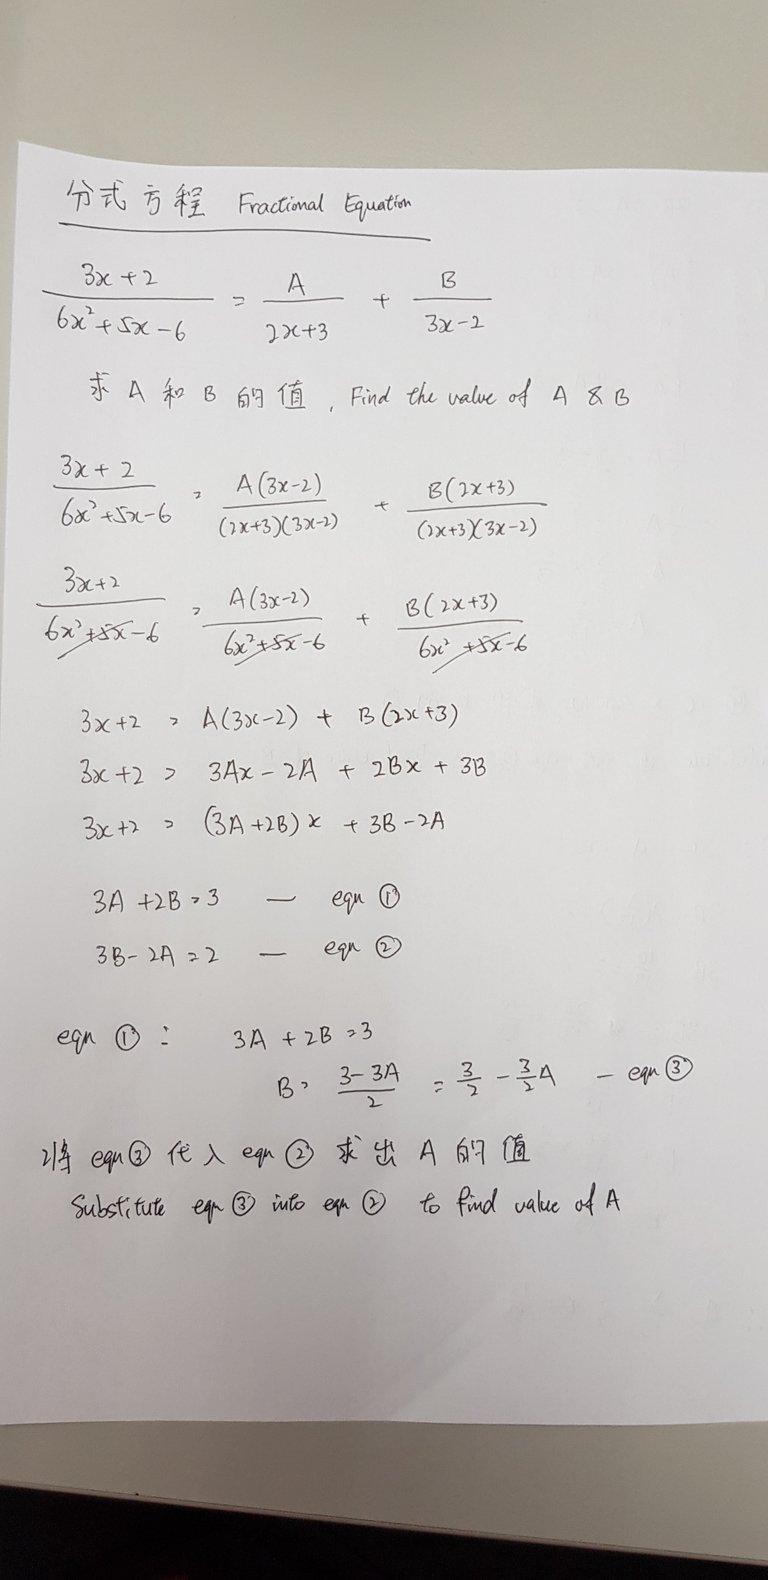 分式方程 Fractional Equation
3x+2 / 6x²+5x-6 = A / 2x+3 + B / 3x-2
求 A 和 B 的值, Find the value of A & B
3x+2 / 6x²+5x-6 = A(3x-2) / (2x+3)(3x-2) + B(2x+3) / (2x+3)(3x-2)
3x+2 / 6x²+5x-6 = A(3x-2) / 6x²+5x-6 + B(2x+3) / 6x²+5x-6
3x+2 = A(3x-2) + B(2x+3)
3x+2 = 3Ax - 2A + 2Bx + 3B
3x+2 = (3A+2B)x + 3B-2A
3A+2B=3 — eqn ①
3B-2A=2 — eqn ②
eqn ① : 3A+2B=3
B = 3-3A / 2 = 3/2 - 3/2 A — eqn ③
将 eqn ③ 代入 eqn ② 求出 A 的值
Substitute eqn ③ into eqn ② to find value of A